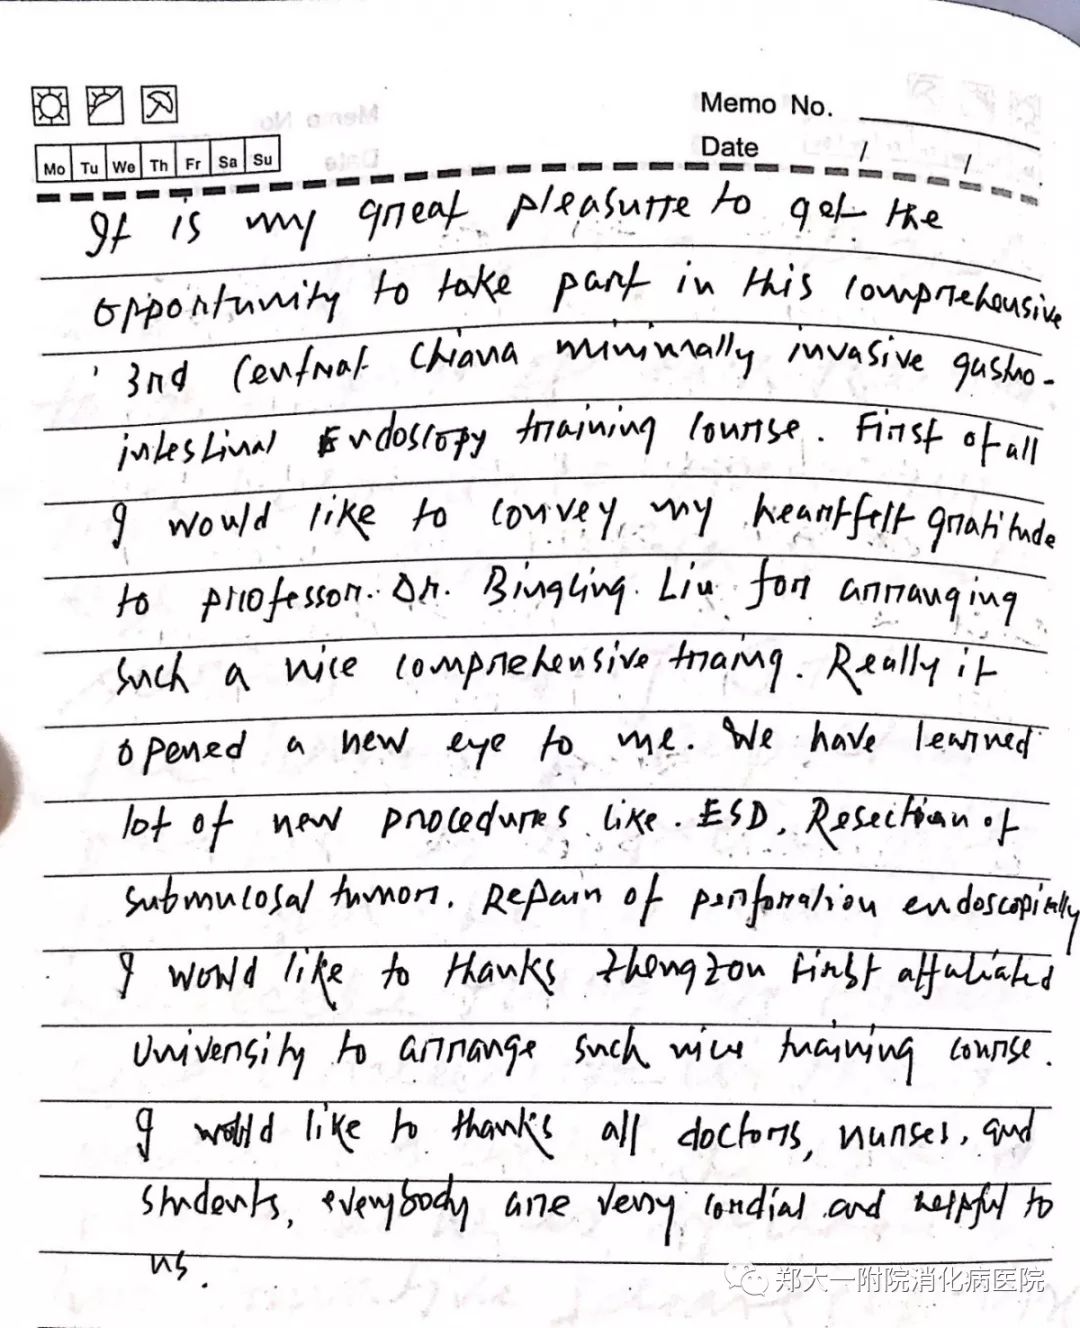 Memo No.
Mo Tu We Th Fr Sa Su
Date / /
It is my great pleasure to get the
opportunity to take part in this comprehensive
3rd Central Chiana minimally invasive gastro-
intestinal Endoscopy training course. First of all
I would like to convey my heartfelt gratitude
to professor. Dr. Bingling. Liu for arranging
such a nice comprehensive traing. Really it
opened a new eye to me. We have learned
lot of new procedures like. ESD, Resection of
submucosal tumor. Repair of perforation endoscopically
I would like to thanks Zhengzou First affialiated
University to arrange such nice training course.
I would like to thanks all doctors, nurses, and
students, everybody are very cordial and helpful to
us.
郑大一附院消化病医院